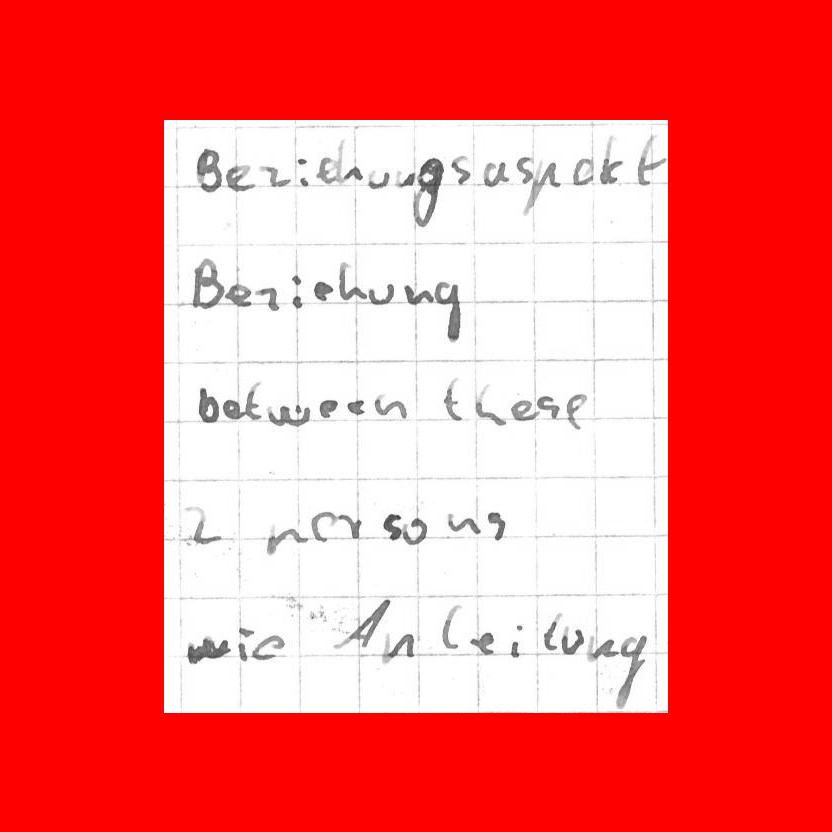 Beziehungsaspekt
Beziehung
between these
2 persons
wie Anleitung